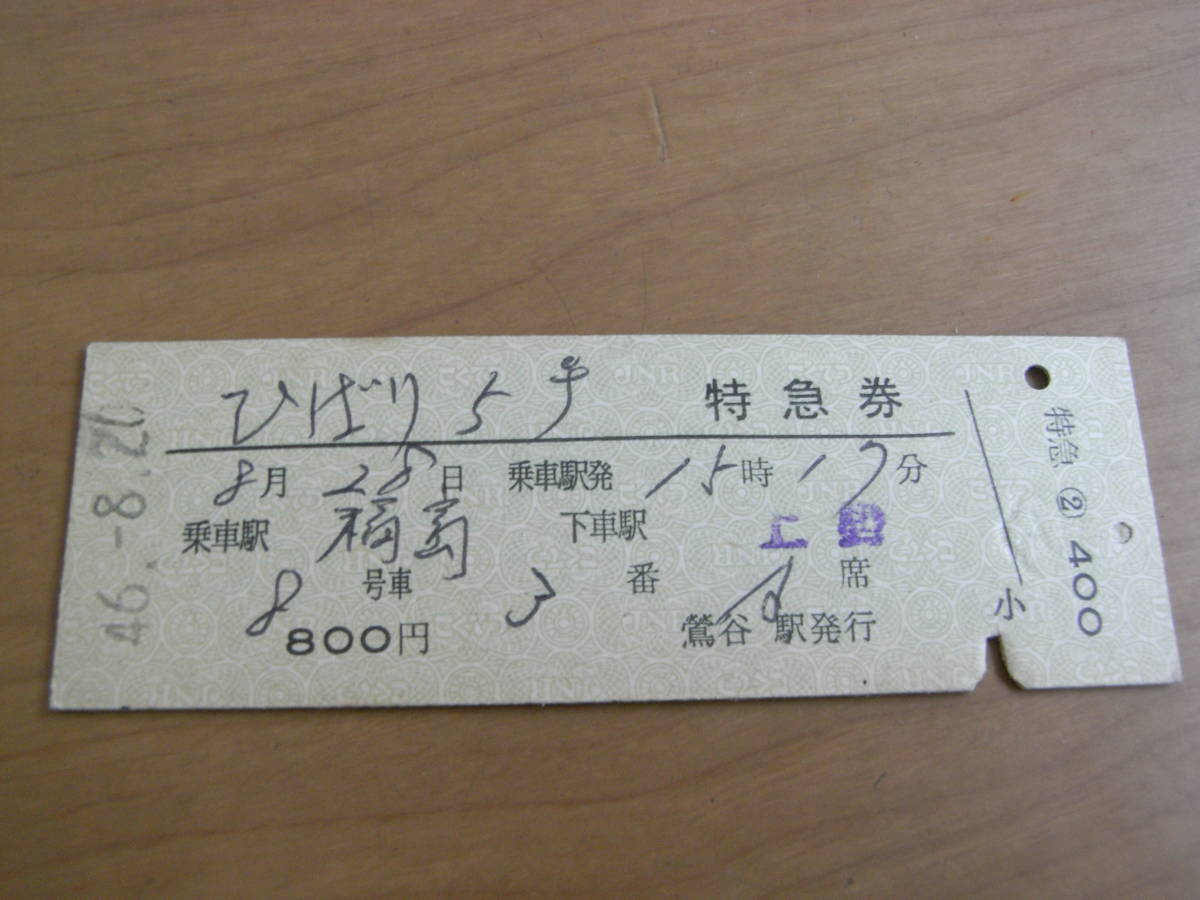 ひばり 5号 特急券
8月 28日 乗車駅発 15時17分
乗車駅 福島 下車駅 上野
8 号車 3 番 A 席
800円 鶯谷 駅発行
46.-8.26
小
特急 ② 400